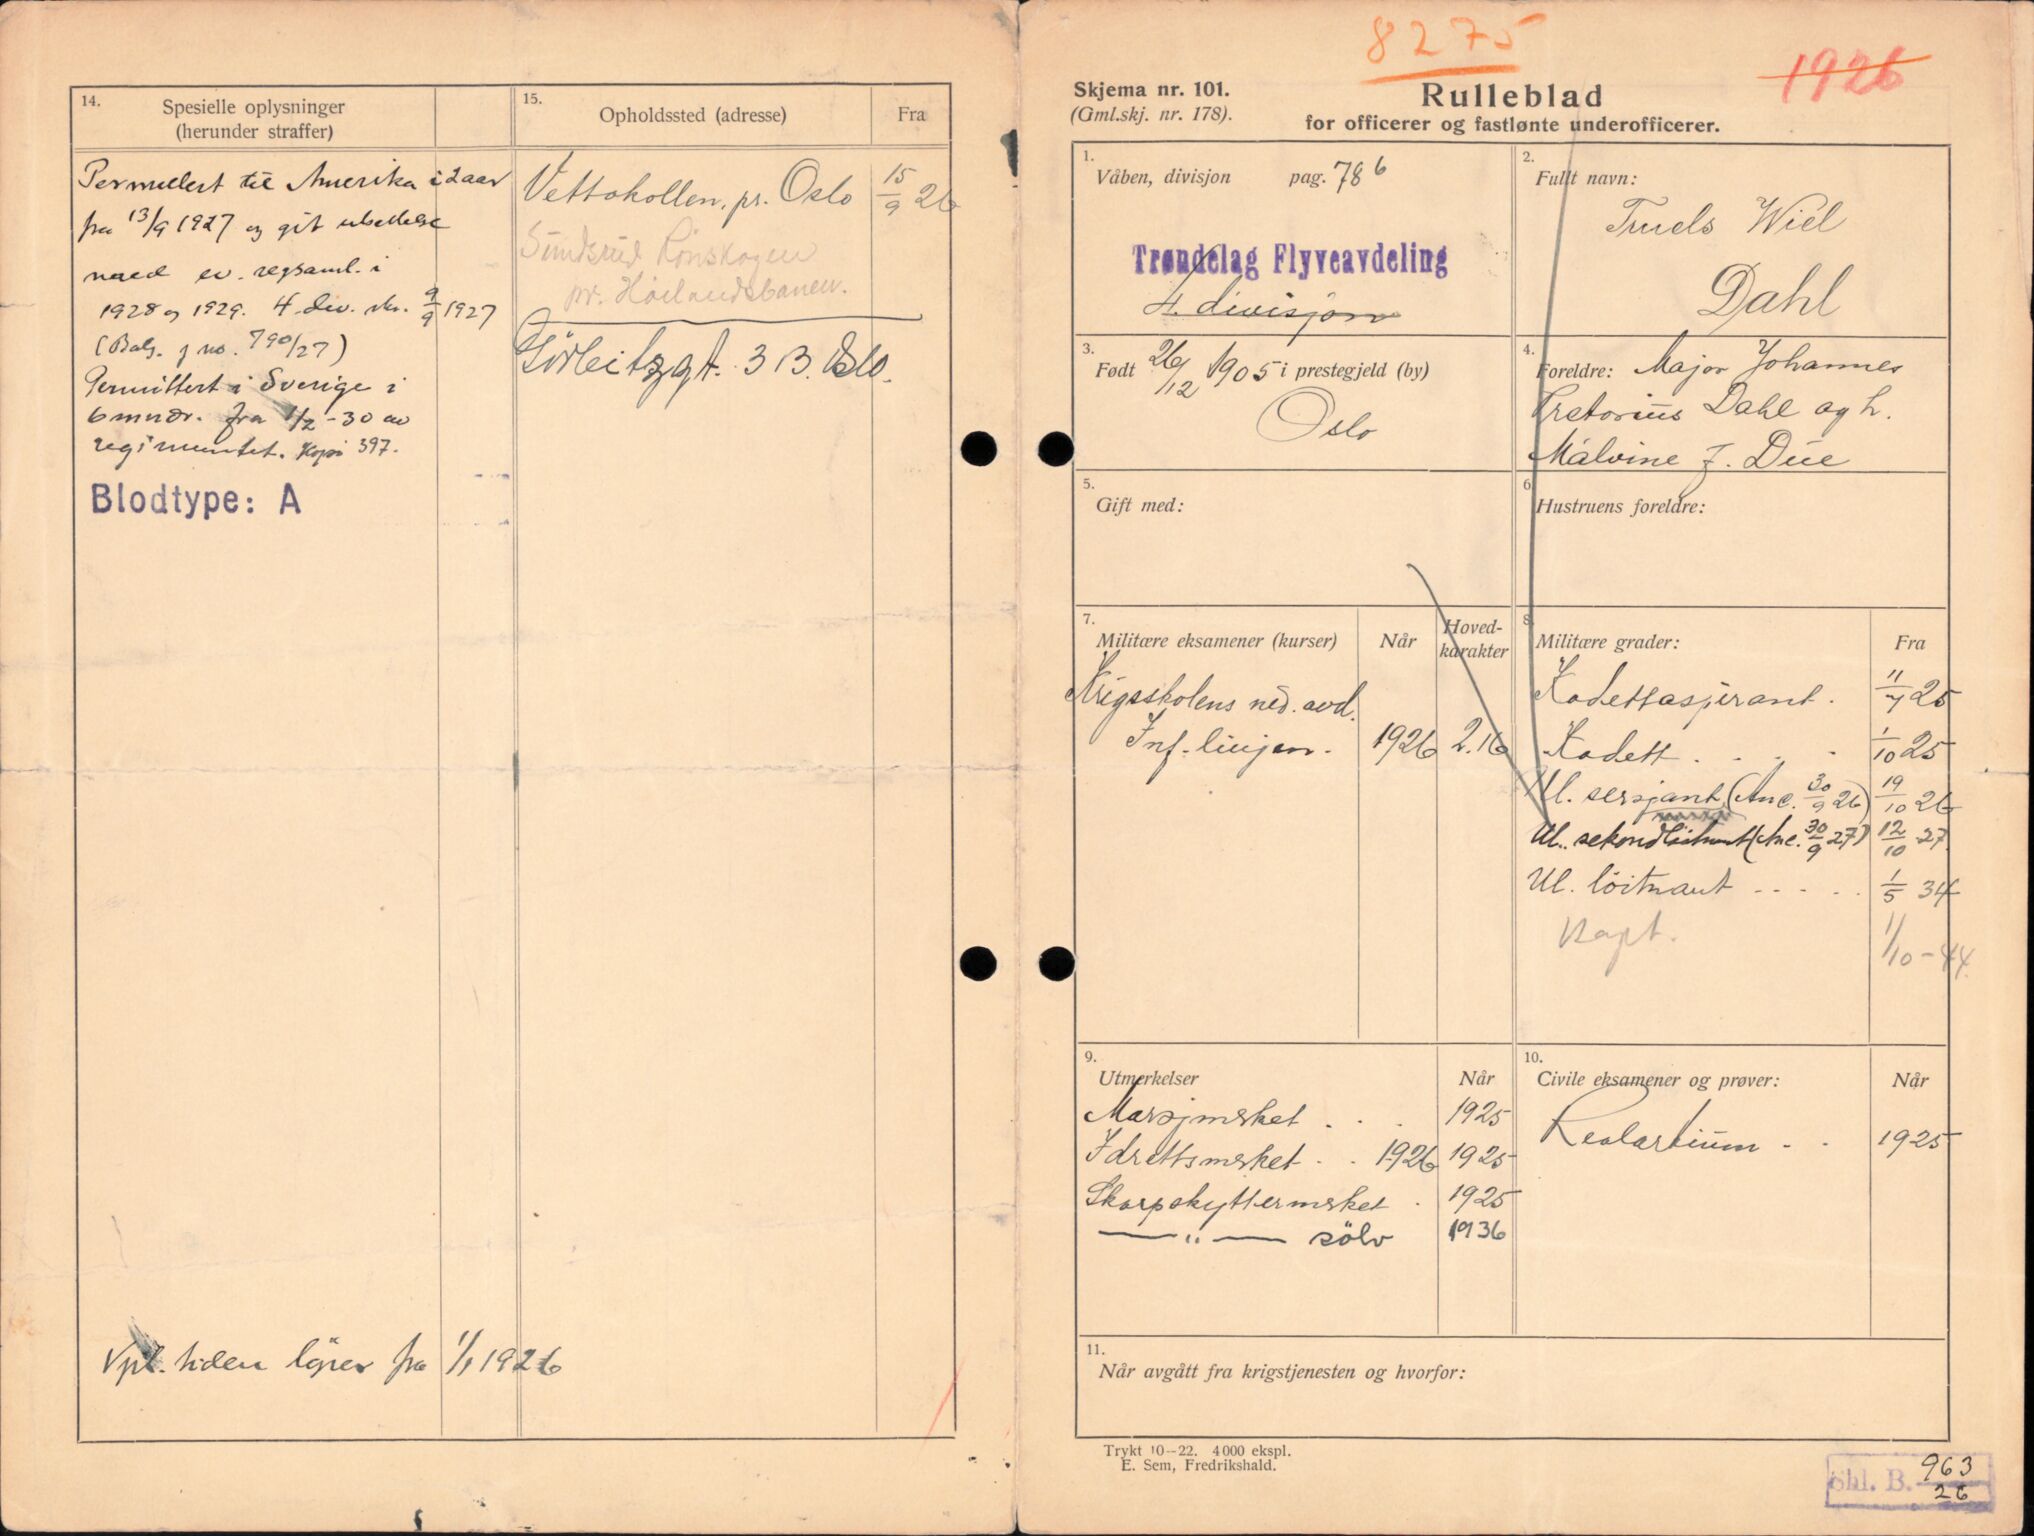 14. Spesielle oplysninger
(herunder straffer)
Permittert til Amerika i 2 aar
fra 13/9 1927 og git utsettelse
med ev. regsaml. i
1928 og 1929. 4. div. skr. 9/9 1927
(Balj. j no. 790/27)
Permittert i Sverige i
6 mndr. fra 1/2 - 30 av
regimentet. Kopi 397.
Blodtype: A
Vpl. tiden löper fra 1/1 1926
15. Opholdssted (adresse)
Fra
Vettakollen, pr. Oslo 15/9 26
Sundsrud Lönskogen
pr. Hölandsbanen.
Görbitzgt. 3 B. Oslo.
8275
1926
Skjema nr. 101.
(Gml.skj. nr. 178).
Rulleblad
for officerer og fastlønte underofficerer.
1.
Våben, divisjon pag. 78 6
Trøndelag Flyveavdeling
4. divisjon
2.
Fullt navn:
Truels Wiel
Dahl
3.
Født 26/12 1905 i prestegjeld (by)
Oslo
4.
Foreldre: Major Johannes
Pretorius Dahl og h.
Malvine J. Due
5.
Gift med:
6.
Hustruens foreldre:
7.
Militære eksamener (kurser) Når Hoved-
karakter
Krigsskolens ned. avd.
Inf. linjen. 1926 2.16
8.
Militære grader: Fra
Kadettaspirant. 11/7 25
Kadett . . . . 1/10 25
Ul. sersjant (Anc. 30/9 26) 19/10 26
Ul. sekondlöitnant (Anc. 30/9 27) 12/10 27
Ul. löitnant - - - . . 1/5 34
Kapt. 1/10 - 44
9.
Utmerkelser Når
Marsjmerket . . . 1925
Idrettsmerket . . 1926 1925
Skarpskyttermerket . 1925
— " — sölv 1936
10.
Civile eksamener og prøver: Når
Realartium - - 1925
11.
Når avgått fra krigstjenesten og hvorfor:
Trykt 10—22. 4000 ekspl.
E. Sem, Fredrikshald.
Shl. B. 963/26